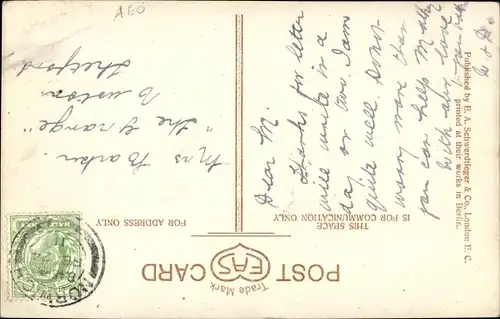 POST CARD
EAS
Trade Mark
THIS SPACE
IS FOR COMMUNICATION ONLY
FOR ADDRESS ONLY
Dear M.
Thanks for letter
will write in a
day or two. I am
quite well. Dont
worry more than
you can help M
With all love
Mrs Barker.
"The Grange"
Euston
Thetford
Published by E. A. Schwerdtfeger & Co., London E. C.
printed at their works in Berlin.